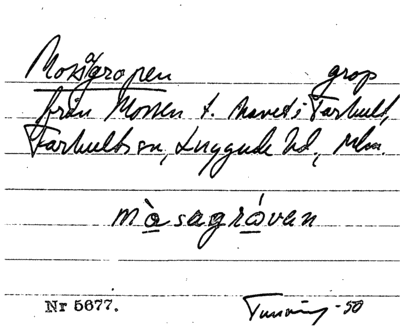 Mossgropen grop
från Mossen t. havet i Farhult,
Farhults sn, Luggude hd, Mlm.
mò̲sagró̲van
Nr 5677. -50